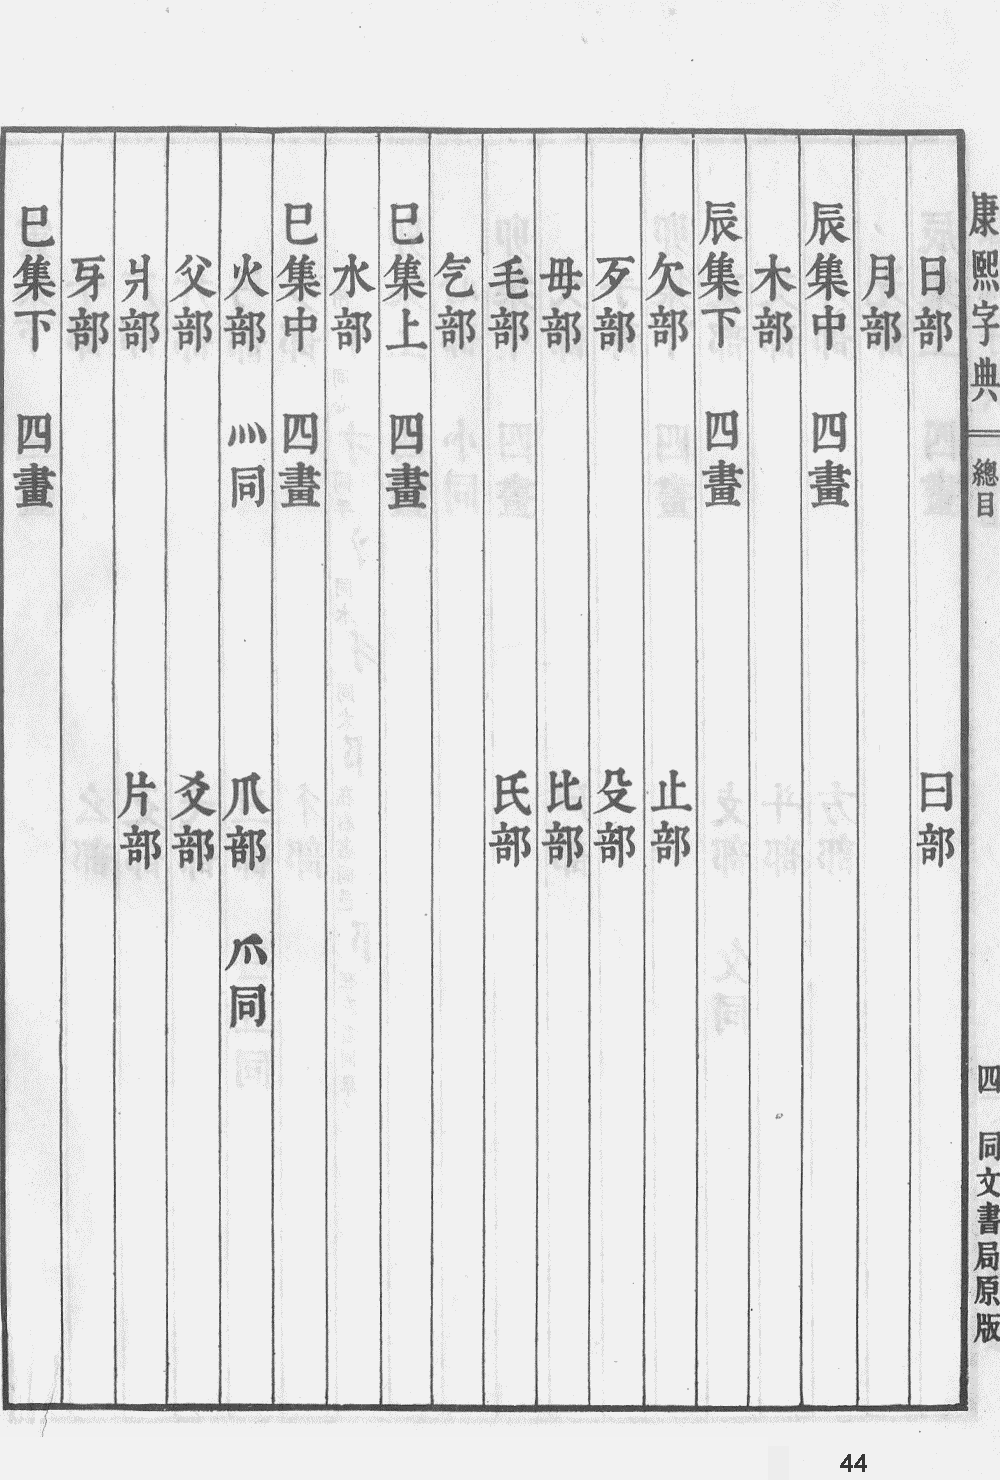 康熙字典 總目 四 同文書局原版
日部 曰部
月部
辰集中 四畫
木部
辰集下 四畫
欠部 止部
歹部 殳部
毋部 比部
毛部 氏部
气部
巳集上 四畫
水部
巳集中 四畫
火部 灬同 爪部 爫同
父部 爻部
爿部 片部
牙部
巳集下 四畫
44